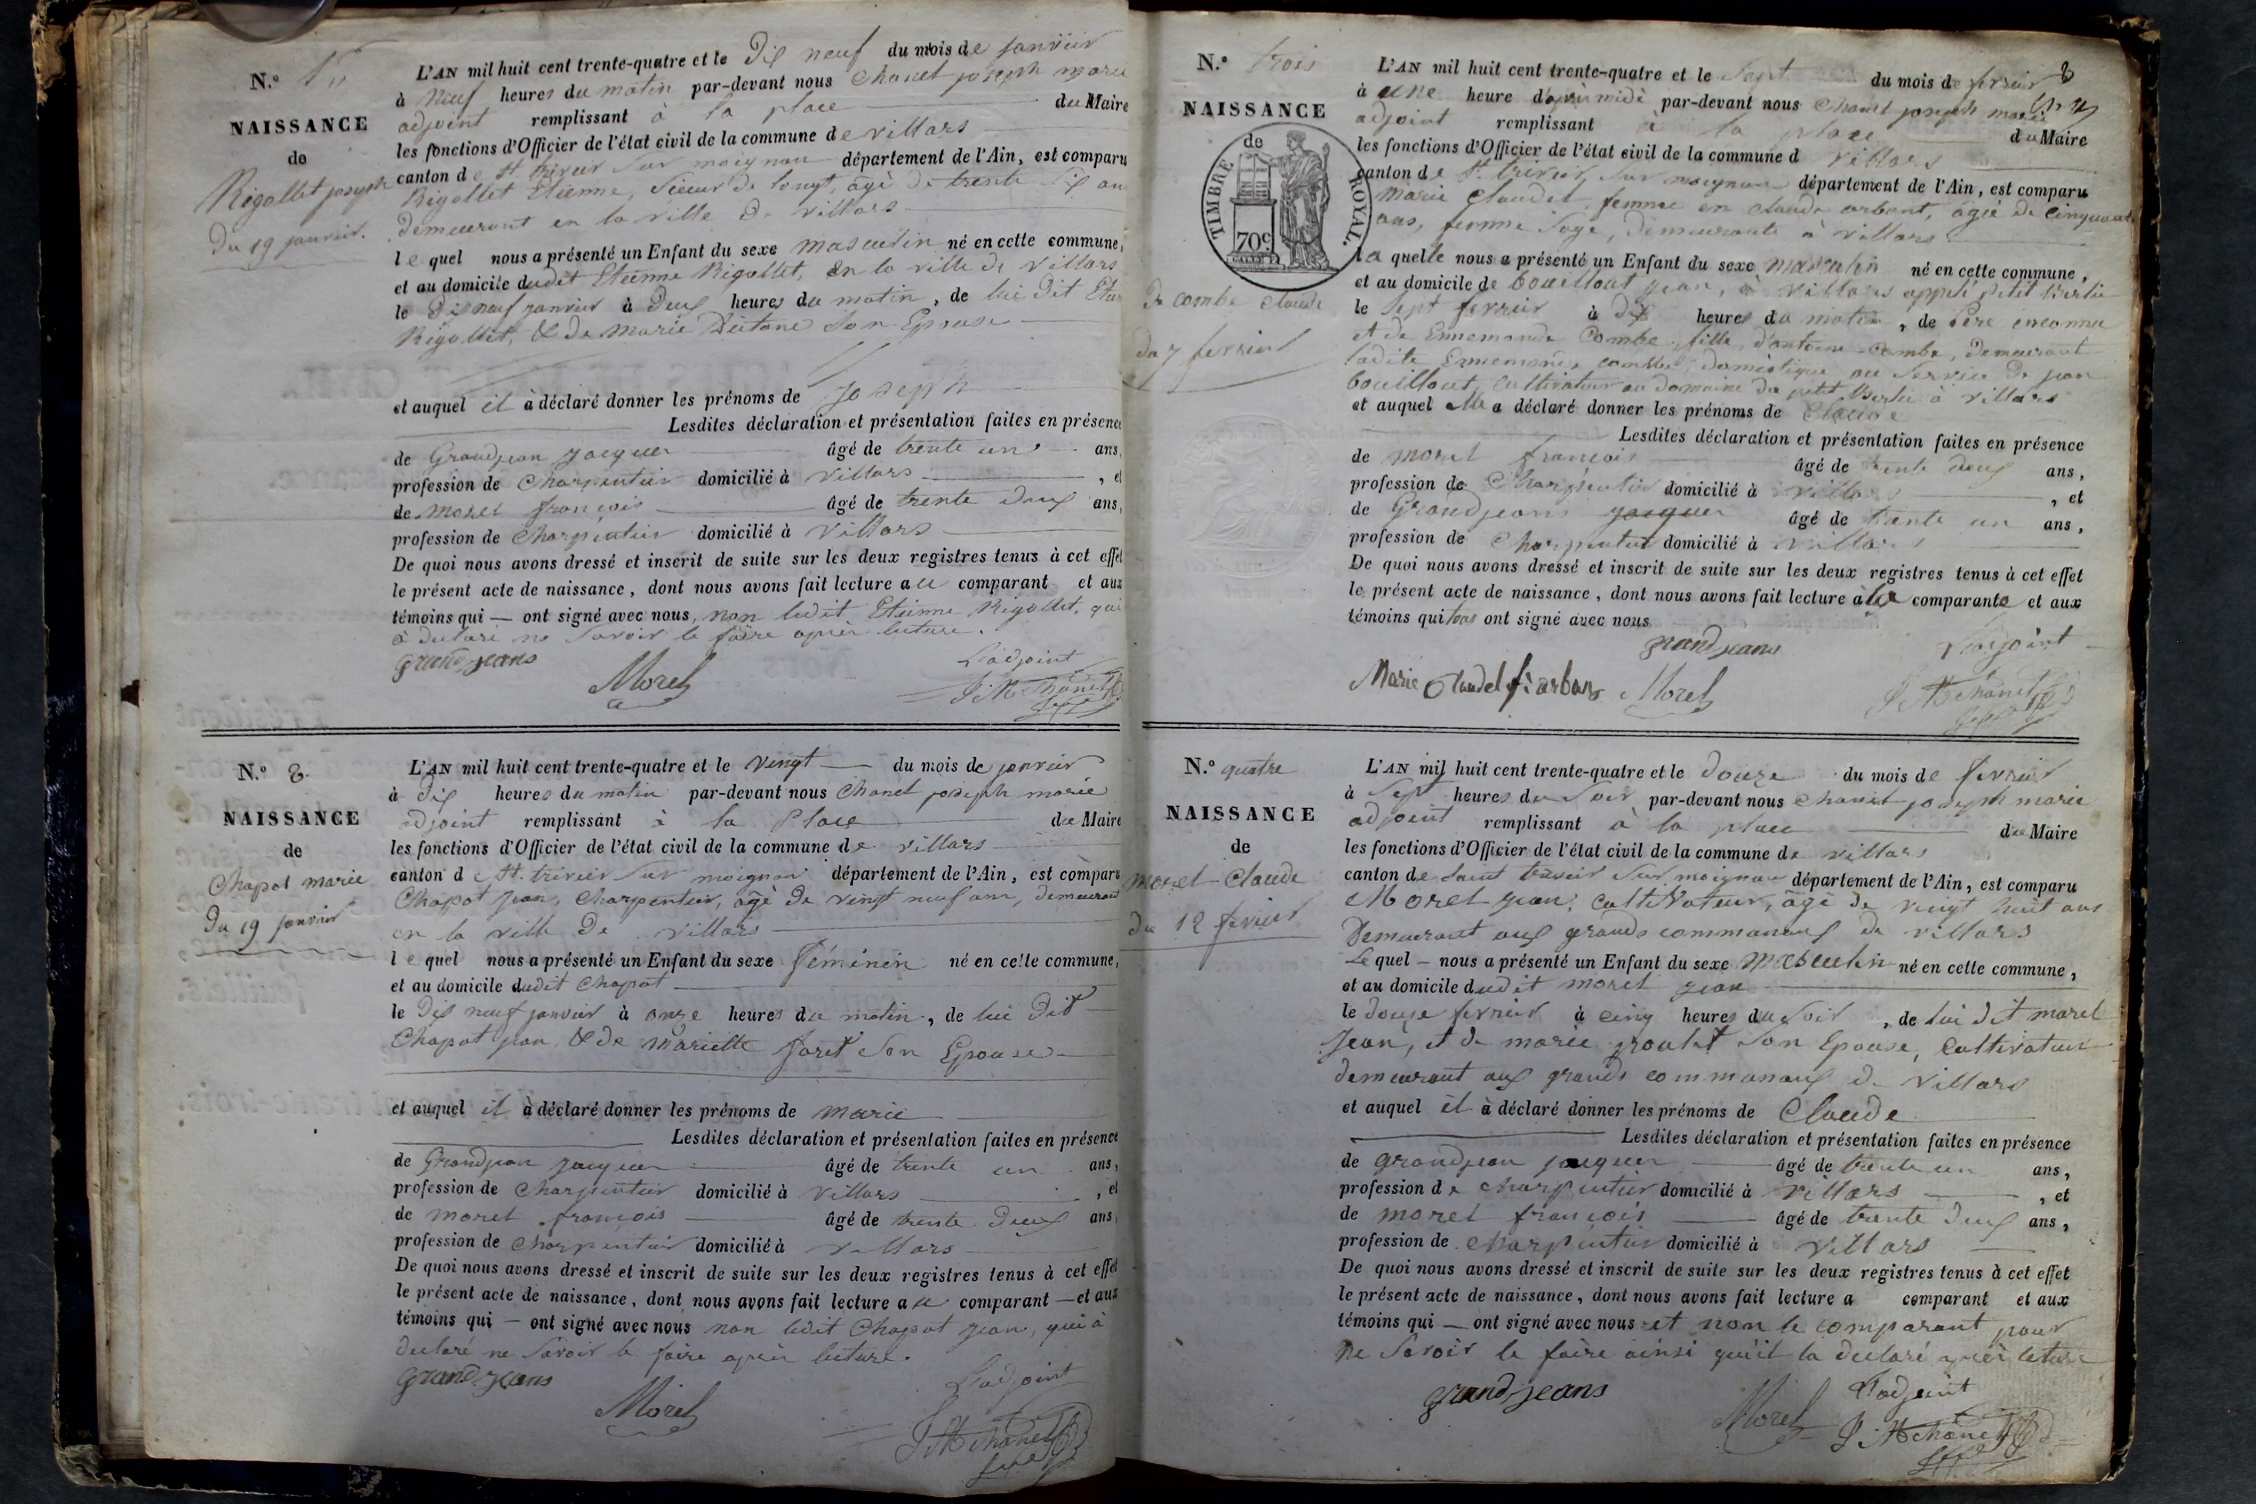 N.º 1er
NAISSANCE
de
Rigollet joseph
Du 19 janvier.
L'AN mil huit cent trente-quatre et le Dix neuf du mois de janvier
à Neuf heures du matin par-devant nous Chanel joseph marie
adjoint remplissant à la place du Maire
les fonctions d'Officier de l'état civil de la commune de villars
canton de St. trivier Sur moignan département de l'Ain, est comparu
Rigollet Etienne, Scieur de long, âgé de trente Six an
demeurant en la ville de villars
le quel nous a présenté un Enfant du sexe masculin né en cette commune,
et au domicile dudit Etienne Rigollet, en la ville de villars
le Dix neuf janvier à Deux heures du matin, de lui dit Etien
Rigollet, & de marie son Epouse
et auquel il à déclaré donner les prénoms de joseph
Lesdites déclaration et présentation faites en présence
de Grandjean jacques âgé de trente un ans,
profession de Charpentier domicilié à villars , et
de morel françois âgé de trente deux ans,
profession de Charpentier domicilié à villars
De quoi nous avons dressé et inscrit de suite sur les deux registres tenus à cet effet
le présent acte de naissance, dont nous avons fait lecture au comparant et aux
témoins qui — ont signé avec nous, non ledit Etienne Rigollet, qui
à declaré ne Savoir le faire après lecture.
grand jeans
Morel
L'adjoint
J M Chanel
N.º 2.
NAISSANCE
de
Chapot marie
Du 19 janvier
L'AN mil huit cent trente-quatre et le vingt du mois de janvier
à dix heures du matin par-devant nous Chanel joseph marie
adjoint remplissant à la place du Maire
les fonctions d'Officier de l'état civil de la commune de villars
canton de St. trivier Sur moignan département de l'Ain, est comparu
Chapot jean, Charpentier, âgé de vingt neuf ans, demeurant
en la ville de villars
le quel nous a présenté un Enfant du sexe féminin né en cette commune,
et au domicile dudit Chapot
le Dix neuf janvier à onze heures du matin, de lui Dit
Chapot jean & de mariette foret Son Epouse
et auquel il à déclaré donner les prénoms de marie
Lesdites déclaration et présentation faites en présence
de Grandjean jacques âgé de trente un ans,
profession de Charpentier domicilié à villars , et
de morel françois âgé de trente Deux ans,
profession de Charpentier domicilié à villars
De quoi nous avons dressé et inscrit de suite sur les deux registres tenus à cet effet
le présent acte de naissance, dont nous avons fait lecture au comparant — et aux
témoins qui — ont signé avec nous non ledit Chapot jean, qui à
declaré ne Savoir le faire après lecture.
grand jeans
Morel
L'adjoint
J M Chanel
2
N.º trois
NAISSANCE
de
TIMBRE ROYAL.
70c
De combe claude
du 7 fevrier
L'AN mil huit cent trente-quatre et le Sept du mois de fevrier
à une heure d'après midi par-devant nous Chanel joseph marie
adjoint remplissant à la place du Maire
les fonctions d'Officier de l'état civil de la commune d villars
canton de St. trivier Sur moignan département de l'Ain, est comparu
marie Claudel femme en claude arbant, âgée de cinquante
ans, femme Sage, demeurante à villars
La quelle nous a présenté un Enfant du sexe masculin né en cette commune,
et au domicile de bouillout jean, à villars appelé petit Berlie
le Sept fevrier à dix heures du matin, de Père inconnu
et de Ennemonde Combe, fille d'antoine Combe, demeurant
ladite Ennemonde combe, domestique au service de jean
bouillout, cultivateur au domaine du petit Berlie à villars
et auquel elle a déclaré donner les prénoms de Claude
Lesdites déclaration et présentation faites en présence
de morel françois âgé de trente deux ans,
profession de Charpentier domicilié à villars , et
de Grandjeans jacques âgé de trente un ans,
profession de Charpentier domicilié à villars
De quoi nous avons dressé et inscrit de suite sur les deux registres tenus à cet effet
le présent acte de naissance, dont nous avons fait lecture à la comparante et aux
témoins qui tous ont signé avec nous
grand jeans
L'adjoint
Marie Claudel fe arban Morel
J M Chanel
N.º quatre
NAISSANCE
de
morel Claude
du 12 fevrier
L'AN mil huit cent trente-quatre et le douze du mois de fevrier
à Sept heures du Soir par-devant nous Chanel joseph marie
adjoint remplissant à la place du Maire
les fonctions d'Officier de l'état civil de la commune de villars
canton de Saint trivier Sur moignan département de l'Ain, est comparu
Morel jean, CultiVateur, âgé de vingt huit ans
Demeurant aux grands communaux de villars
Le quel — nous a présenté un Enfant du sexe masculin né en cette commune,
et au domicile dudit morel jean
le douze fevrier à cinq heures du Soir, de lui dit morel
Jean, et de marie groulet son Epouse, Cultivateur
demeurant aux grands communaux de villars
et auquel il à déclaré donner les prénoms de Claude
Lesdites déclaration et présentation faites en présence
de grandjean jacques âgé de trente un ans,
profession de charpentier domicilié à villars , et
de morel françois âgé de trente deux ans,
profession de charpentier domicilié à villars
De quoi nous avons dressé et inscrit de suite sur les deux registres tenus à cet effet
le présent acte de naissance, dont nous avons fait lecture a comparant et aux
témoins qui — ont signé avec nous et non le comparant pour
ne Savoir le faire ainsi qu'il la declaré après lecture
grand jeans
Morel
L'adjoint
J M Chanel